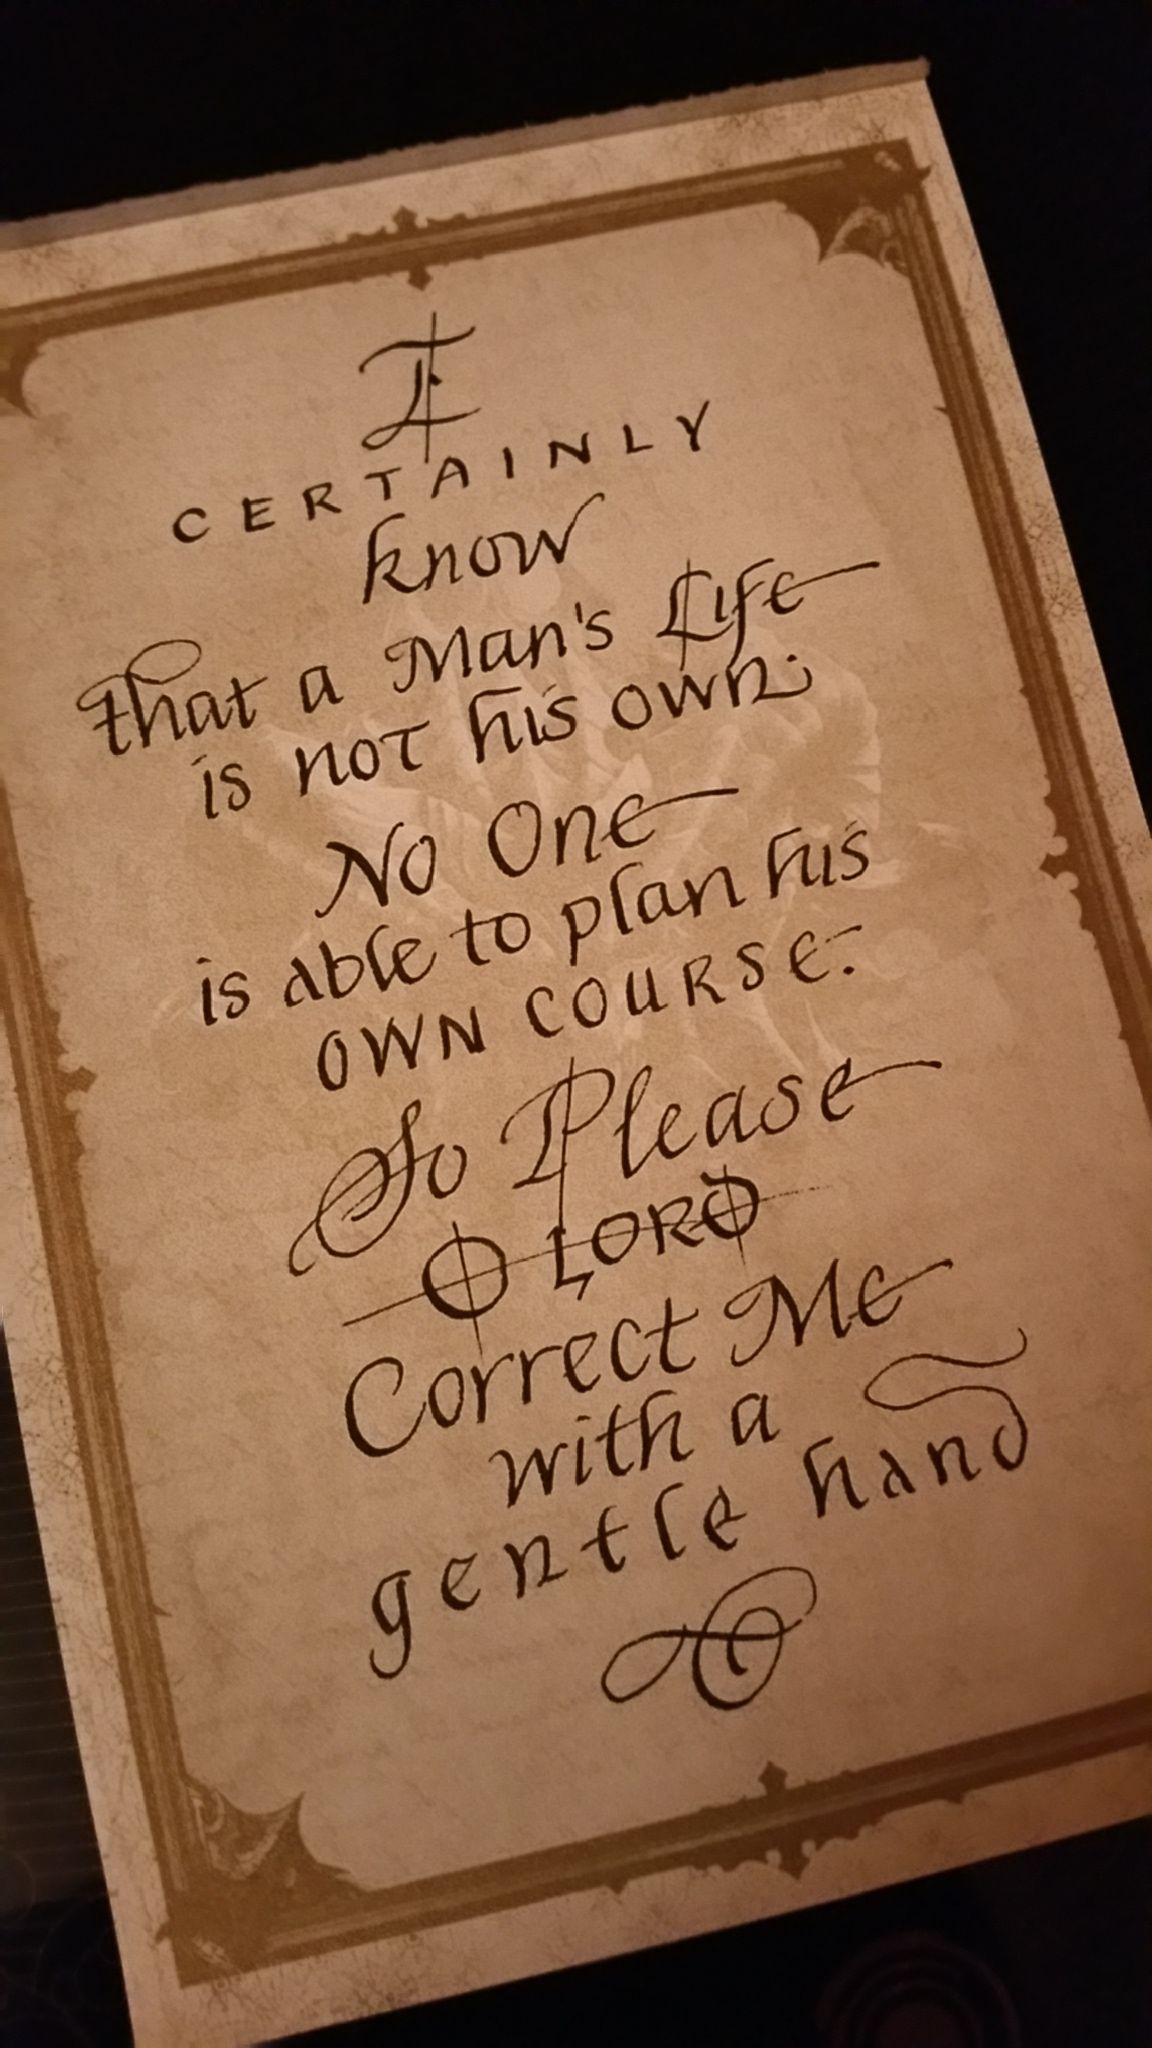 I
CERTAINLY
know
that a Man's Life
is not his own.
No One
is able to plan his
OWN COURSE.
So Please
O LORD
Correct Me
with a
gentle hand